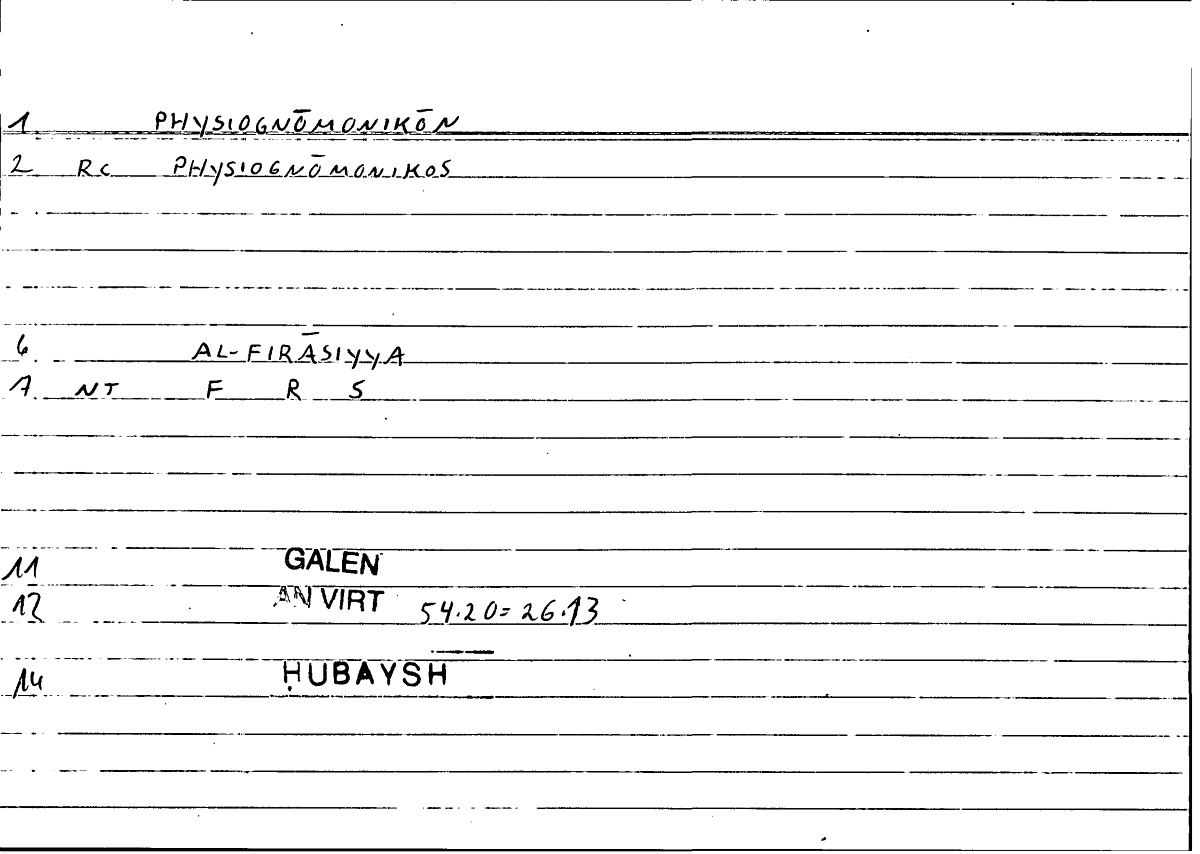 1 PHYSIOGNŌMONIKŌN
2 RC PHYSIOGNŌMONIKOS
6 AL-FIRĀSIYYA
7 NT F R S
11 GALEN
12 AN VIRT 54.20=26.13
14 ḤUBAYSH